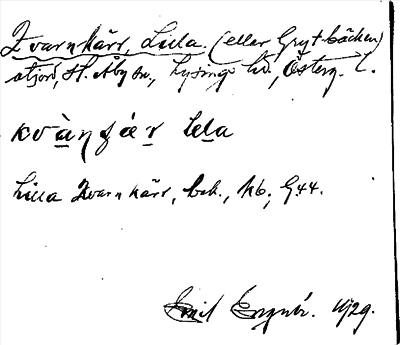 Kvarnkärr, Lilla. (eller Grytbäcken)
atjord, St. Åby sn., Lysings hd., Österg. l.
kvàṇɟær lɩla
Lilla Kvarnkärr, beb., hb., G44.
Emil 1929.